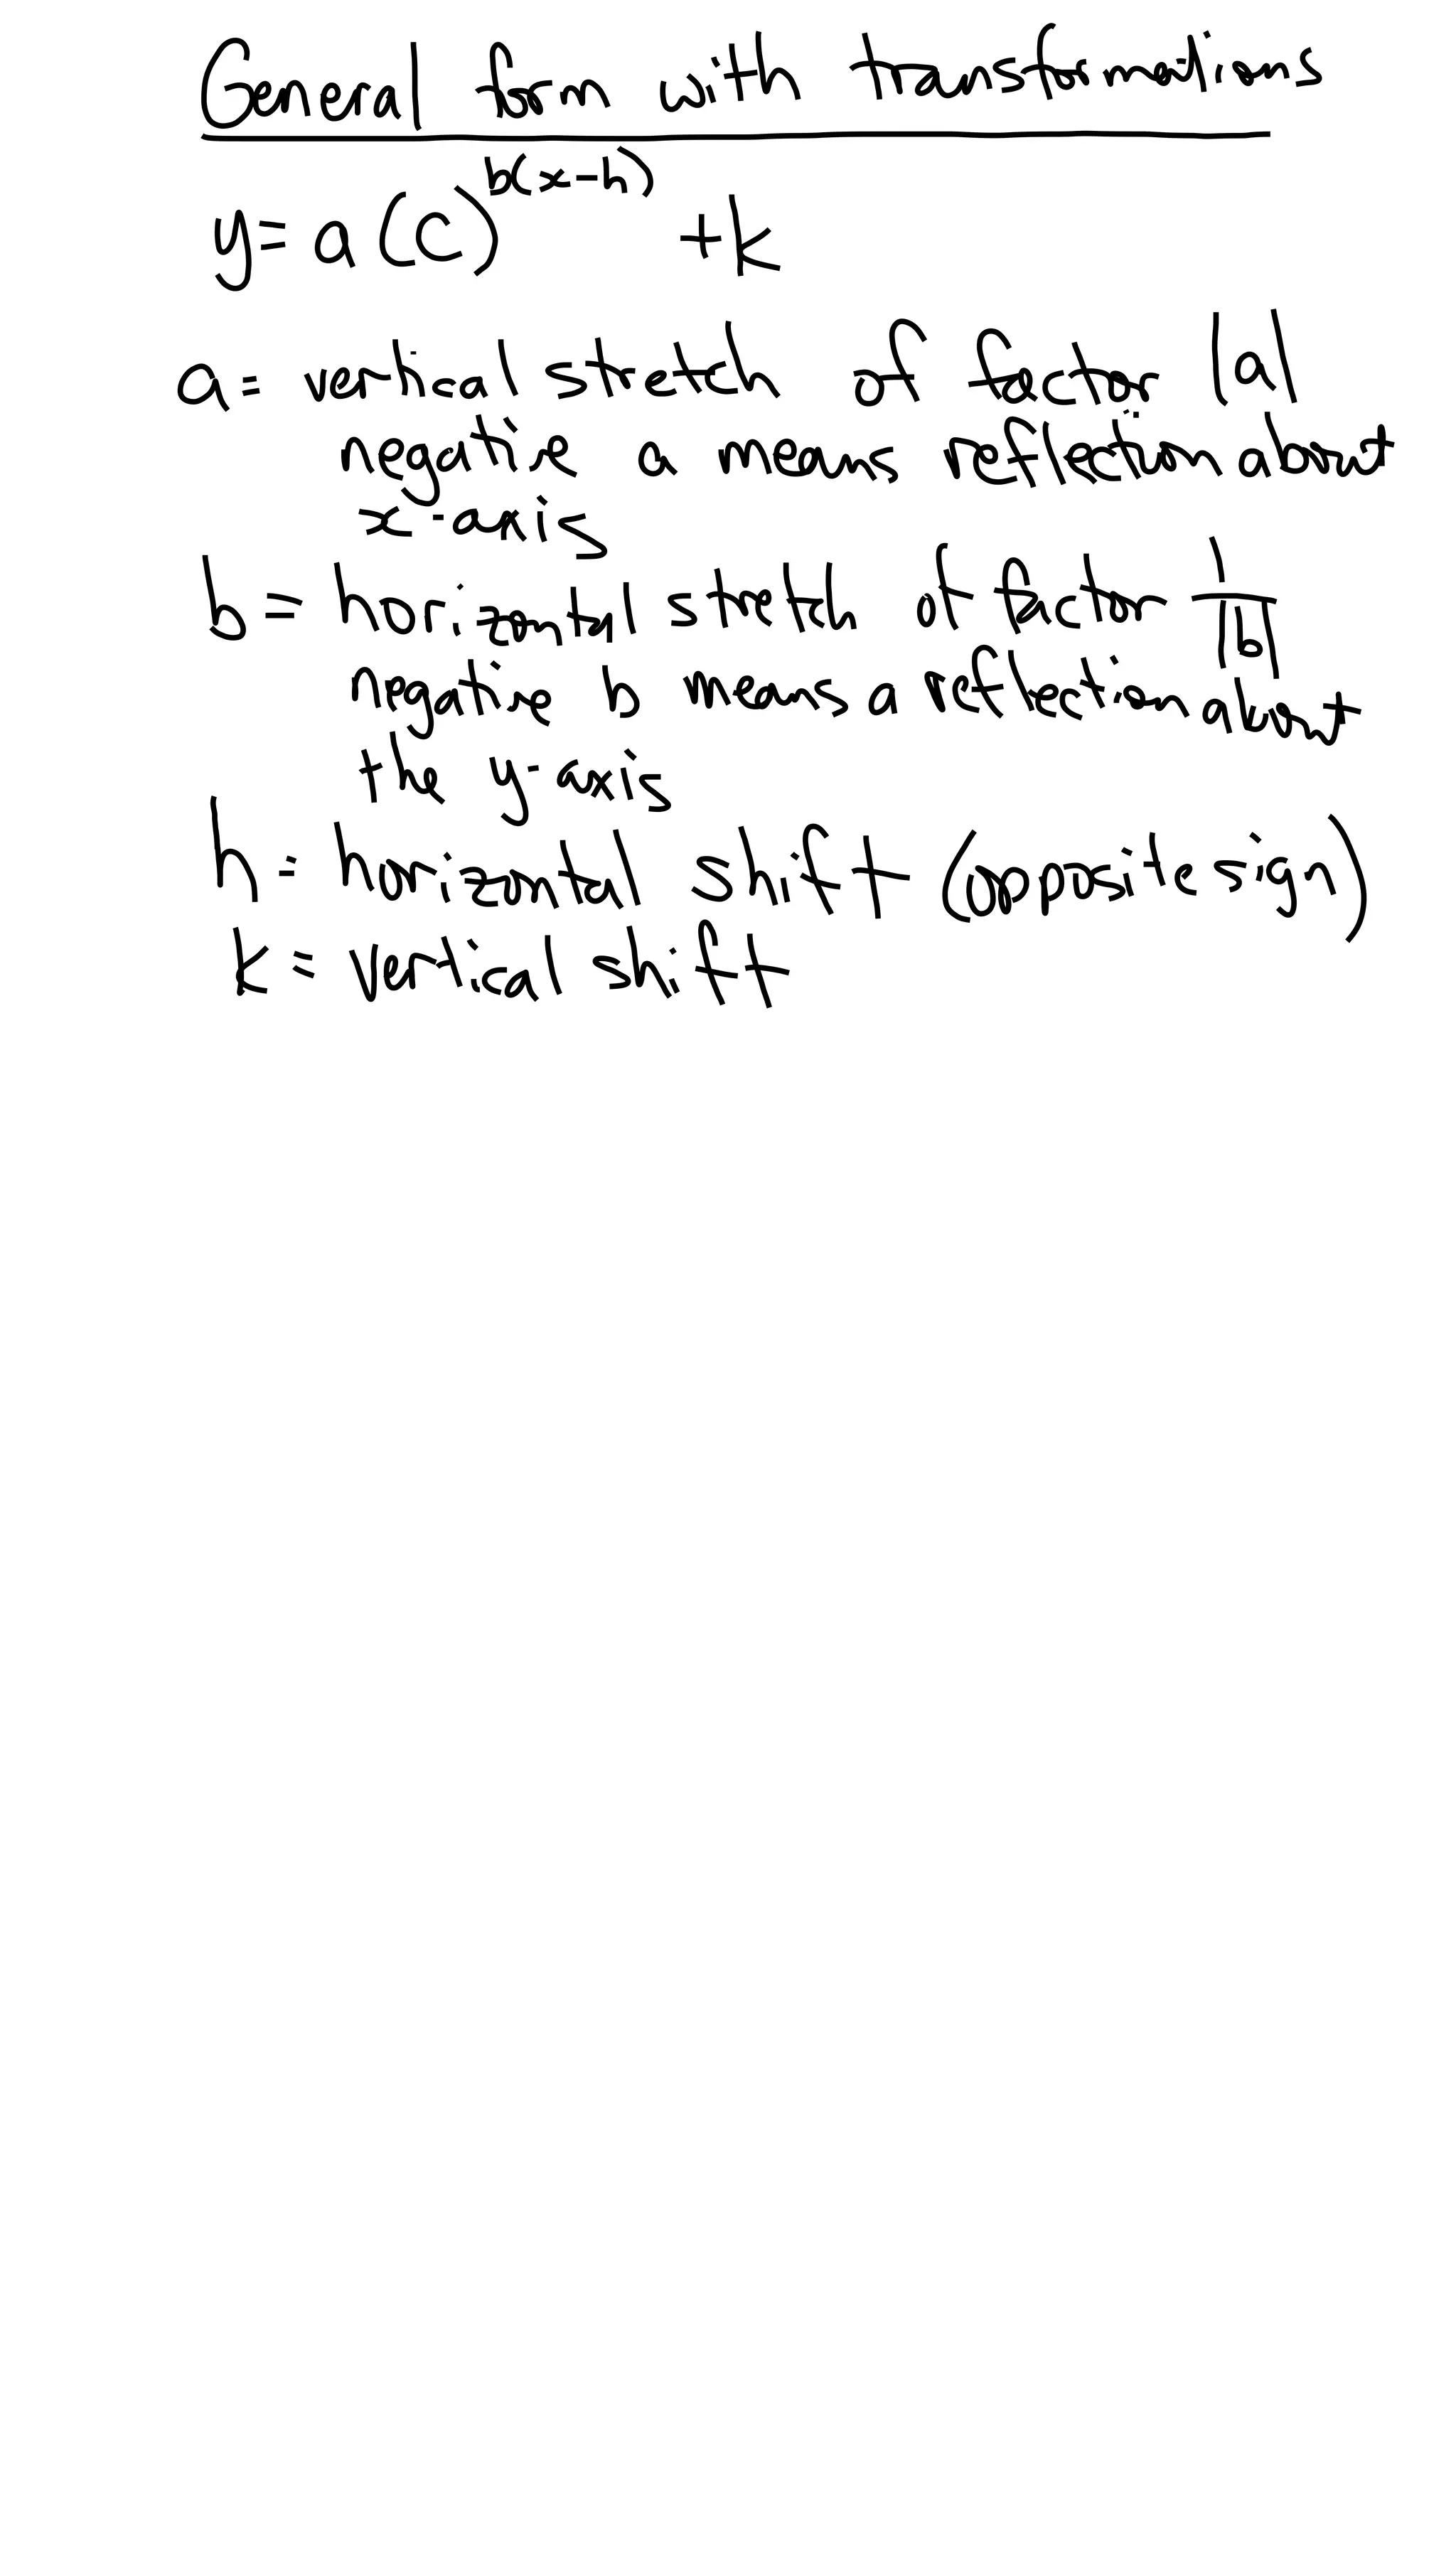 General form with transformations
y = a(c)^b(x-h) + k
a = vertical stretch of factor |a|
negative a means reflection about
x-axis
b = horizontal stretch of factor 1/|b|
negative b means a reflection about
the y-axis
h = horizontal shift (opposite sign)
k = vertical shift